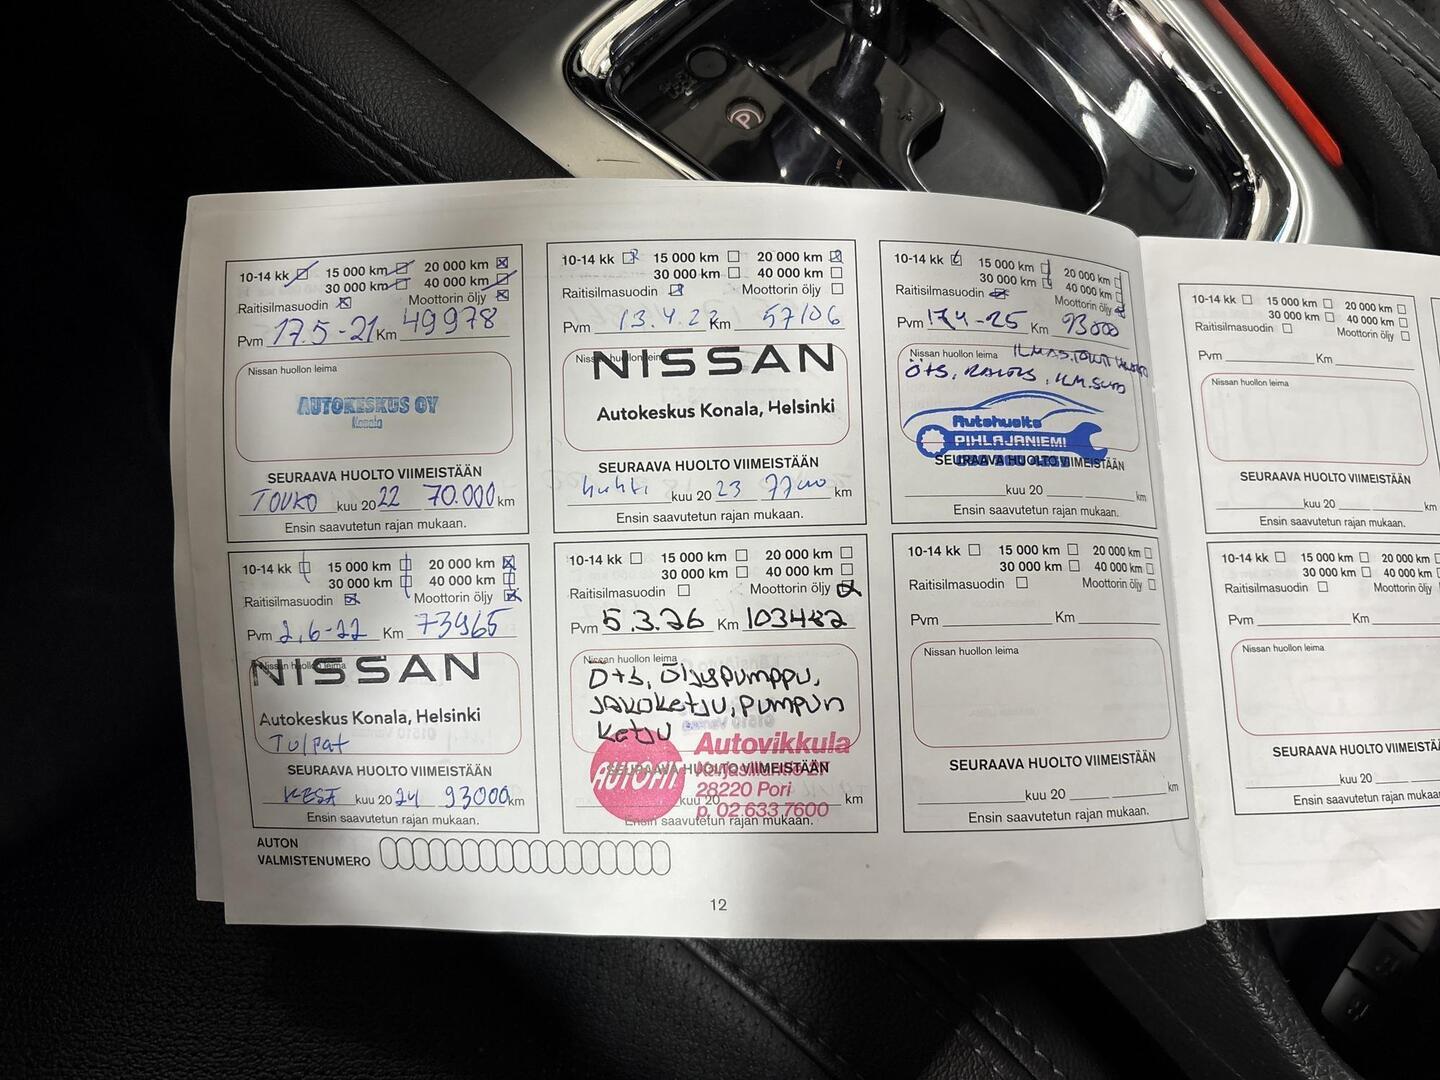 10-14 kk 15 000 km 20 000 km
30 000 km 40 000 km
Raitisilmasuodin Moottorin öljy
Pvm 17.5-21 Km 49978
Nissan huollon leima
AUTOKESKUS OY
Konala
SEURAAVA HUOLTO VIIMEISTÄÄN
TOUKO kuu 2022 70.000 km
Ensin saavutetun rajan mukaan.
10-14 kk 15 000 km 20 000 km
30 000 km 40 000 km
Raitisilmasuodin Moottorin öljy
Pvm 13.4.22 Km 57106
Nissan huollon leima
NISSAN
Autokeskus Konala, Helsinki
SEURAAVA HUOLTO VIIMEISTÄÄN
huhti kuu 20 23 km
Ensin saavutetun rajan mukaan.
10-14 kk 15 000 km 20 000 km
30 000 km 40 000 km
Raitisilmasuodin Moottorin öljy
Pvm 17.4-25 Km 93000
Nissan huollon leima
Ö+S, RAIKAS, ILM.SUOD
Autohuolto
PIHLAJANIEMI
SEURAAVA HUOLTO VIIMEISTÄÄN
kuu 20 km
Ensin saavutetun rajan mukaan.
10-14 kk 15 000 km 20 000 km
30 000 km 40 000 km
Raitisilmasuodin Moottorin öljy
Pvm 2.6-22 Km 73965
Nissan huollon leima
NISSAN
Autokeskus Konala, Helsinki
Tulpat
SEURAAVA HUOLTO VIIMEISTÄÄN
KESÄ kuu 2024 93000 km
Ensin saavutetun rajan mukaan.
10-14 kk 15 000 km 20 000 km
30 000 km 40 000 km
Raitisilmasuodin Moottorin öljy
Pvm 5.3.26 Km 103482
Nissan huollon leima
Ö+S, Öljypumppu,
Jakoketju, Pumpun
ketju
AUTOFIT
Autovikkula
28220 Pori
p. 02 633 7600
SEURAAVA HUOLTO VIIMEISTÄÄN
kuu 20 km
Ensin saavutetun rajan mukaan.
10-14 kk 15 000 km 20 000 km
30 000 km 40 000 km
Raitisilmasuodin Moottorin öljy
Pvm Km
Nissan huollon leima
SEURAAVA HUOLTO VIIMEISTÄÄN
kuu 20 km
Ensin saavutetun rajan mukaan.
AUTON
VALMISTENUMERO
12
10-14 kk 15 000 km 20 000 km
30 000 km 40 000 km
Raitisilmasuodin Moottorin öljy
Pvm Km
Nissan huollon leima
SEURAAVA HUOLTO VIIMEISTÄÄN
kuu 20 km
Ensin saavutetun rajan mukaan.
10-14 kk 15 000 km 20 000 km
30 000 km 40 000
Raitisilmasuodin Moottorin öljy
Pvm Km
Nissan huollon leima
SEURAAVA HUOLTO VIIMEISTÄÄN
kuu 20
Ensin saavutetun rajan mukaan.
P